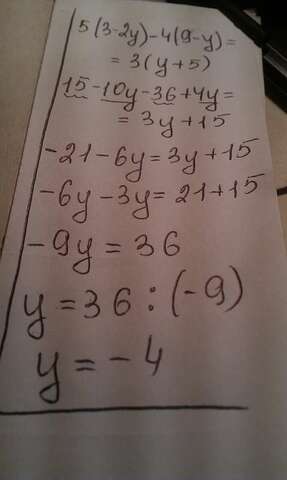 5(3-2y)-4(9-y)=
=3(y+5)
15-10y-36+4y=
=3y+15
-21-6y=3y+15
-6y-3y=21+15
-9y=36
y=36:(-9)
y=-4